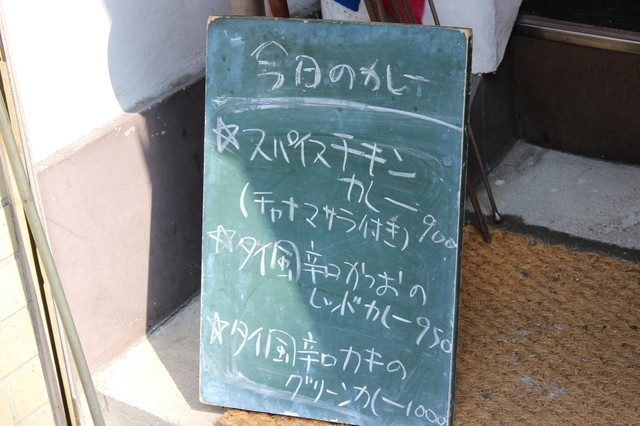 今日のカレー
☆スパイスチキン
カレー900
(チャナマサラ付き)
☆タイ風辛口かつおの
レッドカレー950
☆タイ風辛口カキの
グリーンカレー1000